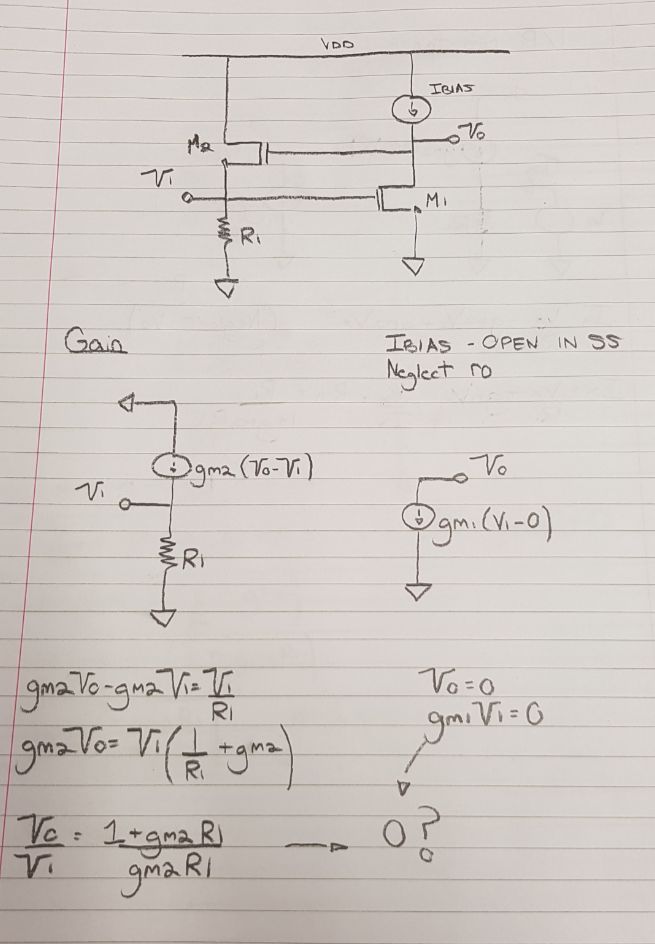 VDD
IBIAS
Vo
M2
Vi
M1
R1
Gain
IBIAS - OPEN IN SS
Neglect ro
gm2 (Vo-Vi)
Vo
Vi
gm1 (Vi-0)
R1
gm2Vo-gm2Vi = Vi/R1
Vo=0
gm1Vi=0
gm2Vo= Vi(1/R1 + gm2)
Vo/Vi = (1+gm2R1)/(gm2R1) → 0?